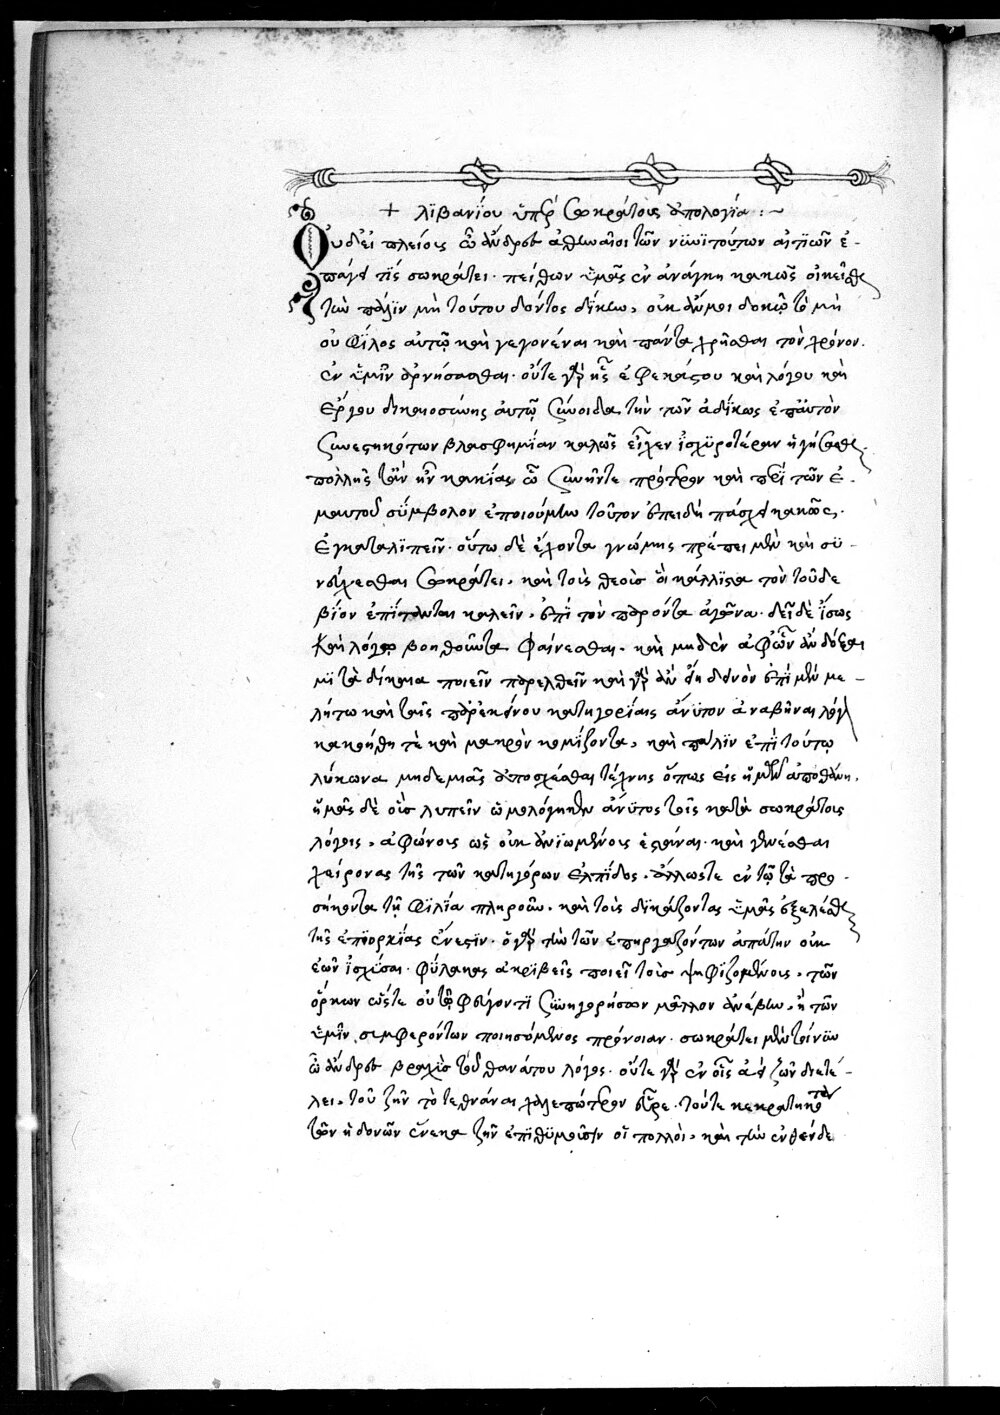 + λϊβανΐου ὑπὲρ σωκράτους ἀπολογία :~
Οὐδ' εἰ πλείοις ὦ ἄνδρες ἀθηναῖοι τῶν νῡνῒ τούτων αἰτιῶν ἐ-
πῆγέ τϊς σωκράτει· πείθων ὑμᾶς ἐν ἀνάγκη κακῶς οἰκεῖσθαι
τὴν πόλϊν μὴ τούτου δόντος δίκην, οὐκ ἄν μοι δοκῶ τὸ μὴ
οὐ φΐλος αὐτῷ καὶ γεγονέναι καὶ πάντα χρῆσθαι τὸν χρόνον.
ἐν ὑμῖν ἀρνήσασθαι· οὔτε γὰρ ἧς ἐφ' ἑκάστου καὶ λόγου καὶ
ἔργου δικαιοσύνης αὐτῷ σύνοιδα τὴν τῶν ἀδΐκως ἐπ' αὐτὸν
συνεστηκότων βλασφημΐαν καλῶς εἶχεν ἰσχϋροτέραν ἡγήσασθαι.
πολλῆς τ' ἂν ἦν κακΐας, ὧ συνῆν τε πρότερον καὶ περὶ τῶν ἐ-
μαυτοῦ σύμβολον ἐποιούμην τοῦτον ἐπειδὴ πάσχει κακῶς,
ἐγκαταλϊπεῖν· οὕτω δὲ ἔχοντα γνώμης πρέπει μὲν καὶ σϋ-
νεύχεσθαι σωκράτει, καὶ τοὺς θεοὺς οἳ κάλλϊστα τὸν τοῦδε
βΐον ἐπΐστανται καλεῖν, ἐπὶ τὸν παρόντα ἀγῶνα· δεῖ δὲ ἴσως
καὶ λόγω βοηθοῦντα φαίνεσθαι· καὶ μηδὲν ἀφ' ὧν ἂν δόξαι-
μϊ τὰ δίκαια ποιεῖν παρελθεῖν καὶ γὰρ ἂν εἴη δεινὸν ἐπὶ μὲν με-
λήτω καὶ ταῖς παρ' ἐκείνου κατηγορΐαις ἄνϋτον ἀναβῆναι λόγον
κακοήθη τὲ καὶ μακρὸν κομΐζοντα, καὶ πάλϊν ἐπῒ τούτω
λύκωνα μηδεμιᾶς ἀποσχέσθαι τέχνης ὅπως εἷς ἡμῶν ἀποθάνη,
ἡμᾶς δὲ οὓς λυπεῖν ὡμολόγησεν ἄνϋτος τοῖς κατὰ σωκράτους
λόγοις, ἀφώνους ὡς οὐκ ἀνϊωμένους ἑστάναι· καὶ γενέσθαι
χείρονας τῆς τῶν κατηγόρων ἐλπΐδος, ἄλλως τε ἐν τῷ τὰ προ-
σήκοντα τῇ φϊλΐα πληροῦν, καὶ τοὺς δϊκάζοντας ὑμᾶς ἐξελέσθαι
τῆς ἐπϊορκΐας ἔνεστϊν· ὁ γὰρ τὴν τῶν ἐπηρεαζόντων ἀπάτην οὐκ
ἐῶν ἰσχῦσαι· φύλακας ἀκρϊβεῖς ποιεῖ τοὺς ψηφϊζομένους, τῶν
ὅρκων ὥστε οὐ τῷ φεύγοντϊ συνηγορήσων μᾶλλον ἀνέβην, ἢ τῶν
ὑμῖν συμφερόντων ποιησόμενος πρόνοιαν· σωκράτει μὲν τοίνυν
ὦ ἄνδρες βραχὺς τοῦ θανάτου λόγος· οὔτε γὰρ ἐν οἷς ἀεὶ ζῶν διετέ-
λει, τοῦ ζῆν τὸ τεθνάναι χαλεπώτερον εὗρε· τούτε κεκρατηκότα
τῶν ἡδονῶν ὧν ἕνεκα ζῆν ἐπϊθϋμοῦσϊν οἱ πολλοὶ, καὶ τὴν ἐνθένδε